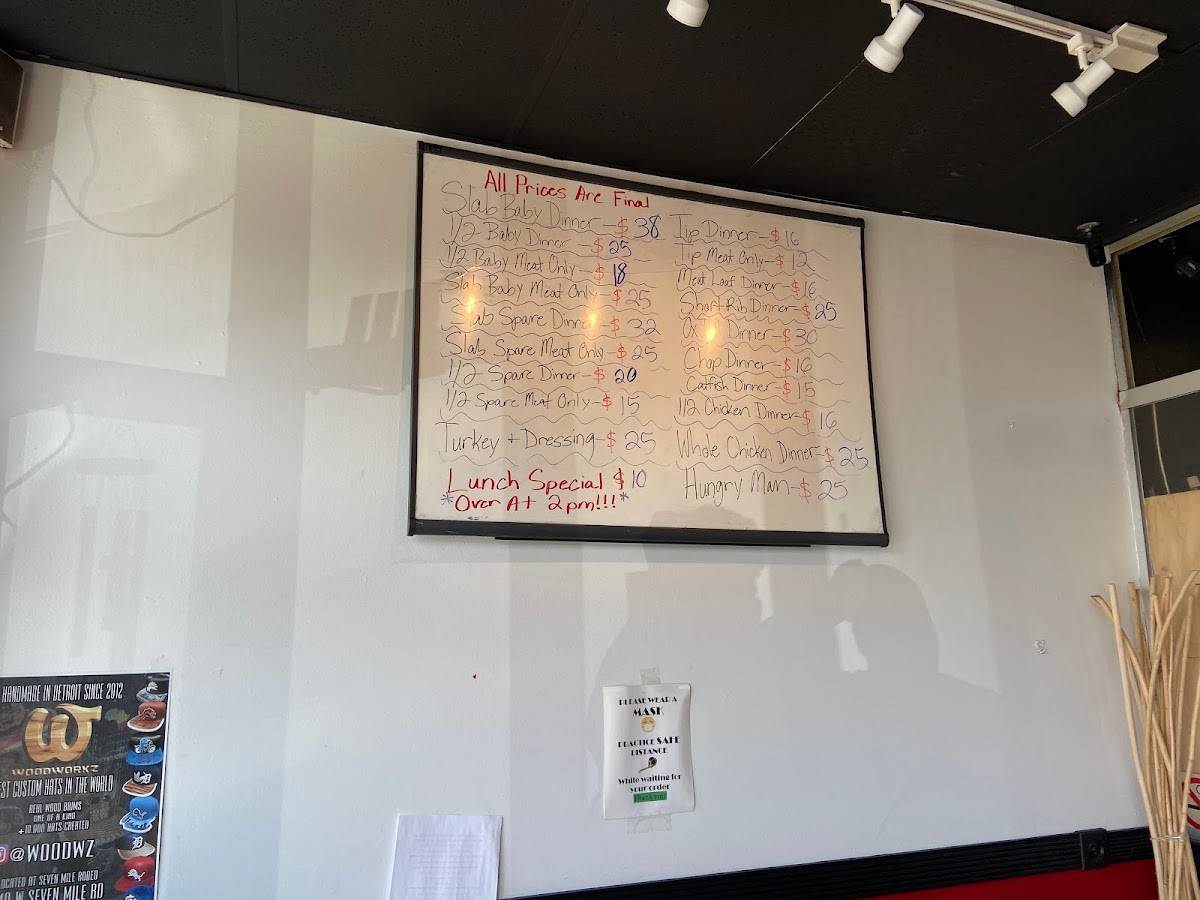 All Prices Are Final
Slab Baby Dinner - $ 38
1/2 Baby Dinner - $ 25
1/2 Baby Meat Only - $ 18
Slab Baby Meat Only - $ 25
Slab Spare Dinner - $ 32
Slab Spare Meat Only - $ 25
1/2 Spare Dinner - $ 20
1/2 Spare Meat Only - $ 15
Turkey + Dressing - $ 25
Lunch Special $ 10
*Over At 2pm!!!*
Tip Dinner - $ 16
Tip Meat Only - $ 12
Meat Loaf Dinner - $ 16
Short Rib Dinner - $ 25
Ox Dinner - $ 30
Chop Dinner - $ 16
Catfish Dinner - $ 15
1/2 Chicken Dinner - $ 16
Whole Chicken Dinner - $ 25
Hungry Man - $ 25
PLEASE WEAR A
MASK
PRACTICE SAFE
DISTANCE
While waiting for
your order
HANDMADE IN DETROIT SINCE 2012
W
WOODWORKZ
EST CUSTOM HATS IN THE WORLD
REAL WOOD BRIMS
ONE OF A KIND
+10,000 HATS CREATED
@WOODWZ
OCATED AT SEVEN MILE RODEO
W SEVEN MILE RD